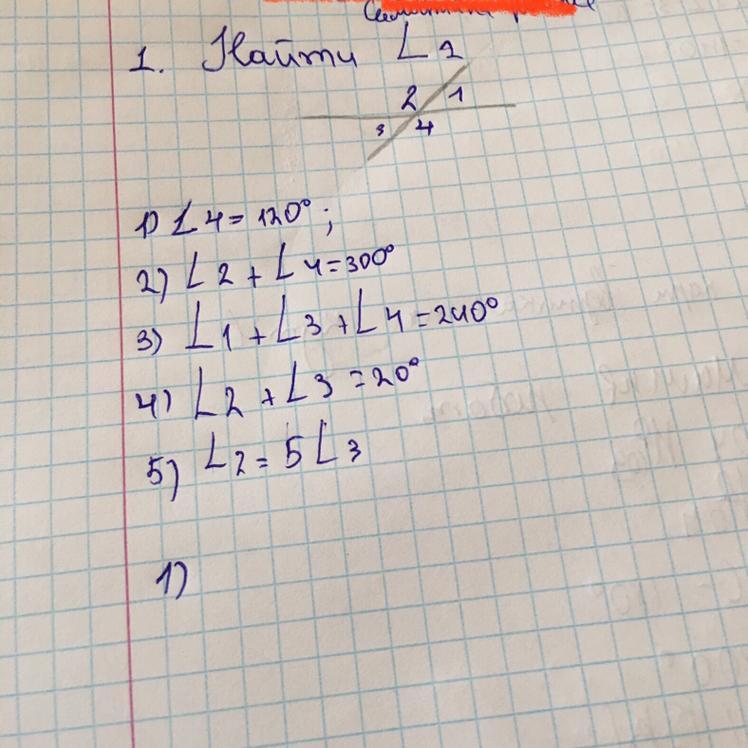 1. Найти ∠1
2 1
3 4
1) ∠4=120°;
2) ∠2+∠4=300°
3) ∠1+∠3+∠4=240°
4) ∠2+∠3=20°
5) ∠2=5∠3
1)